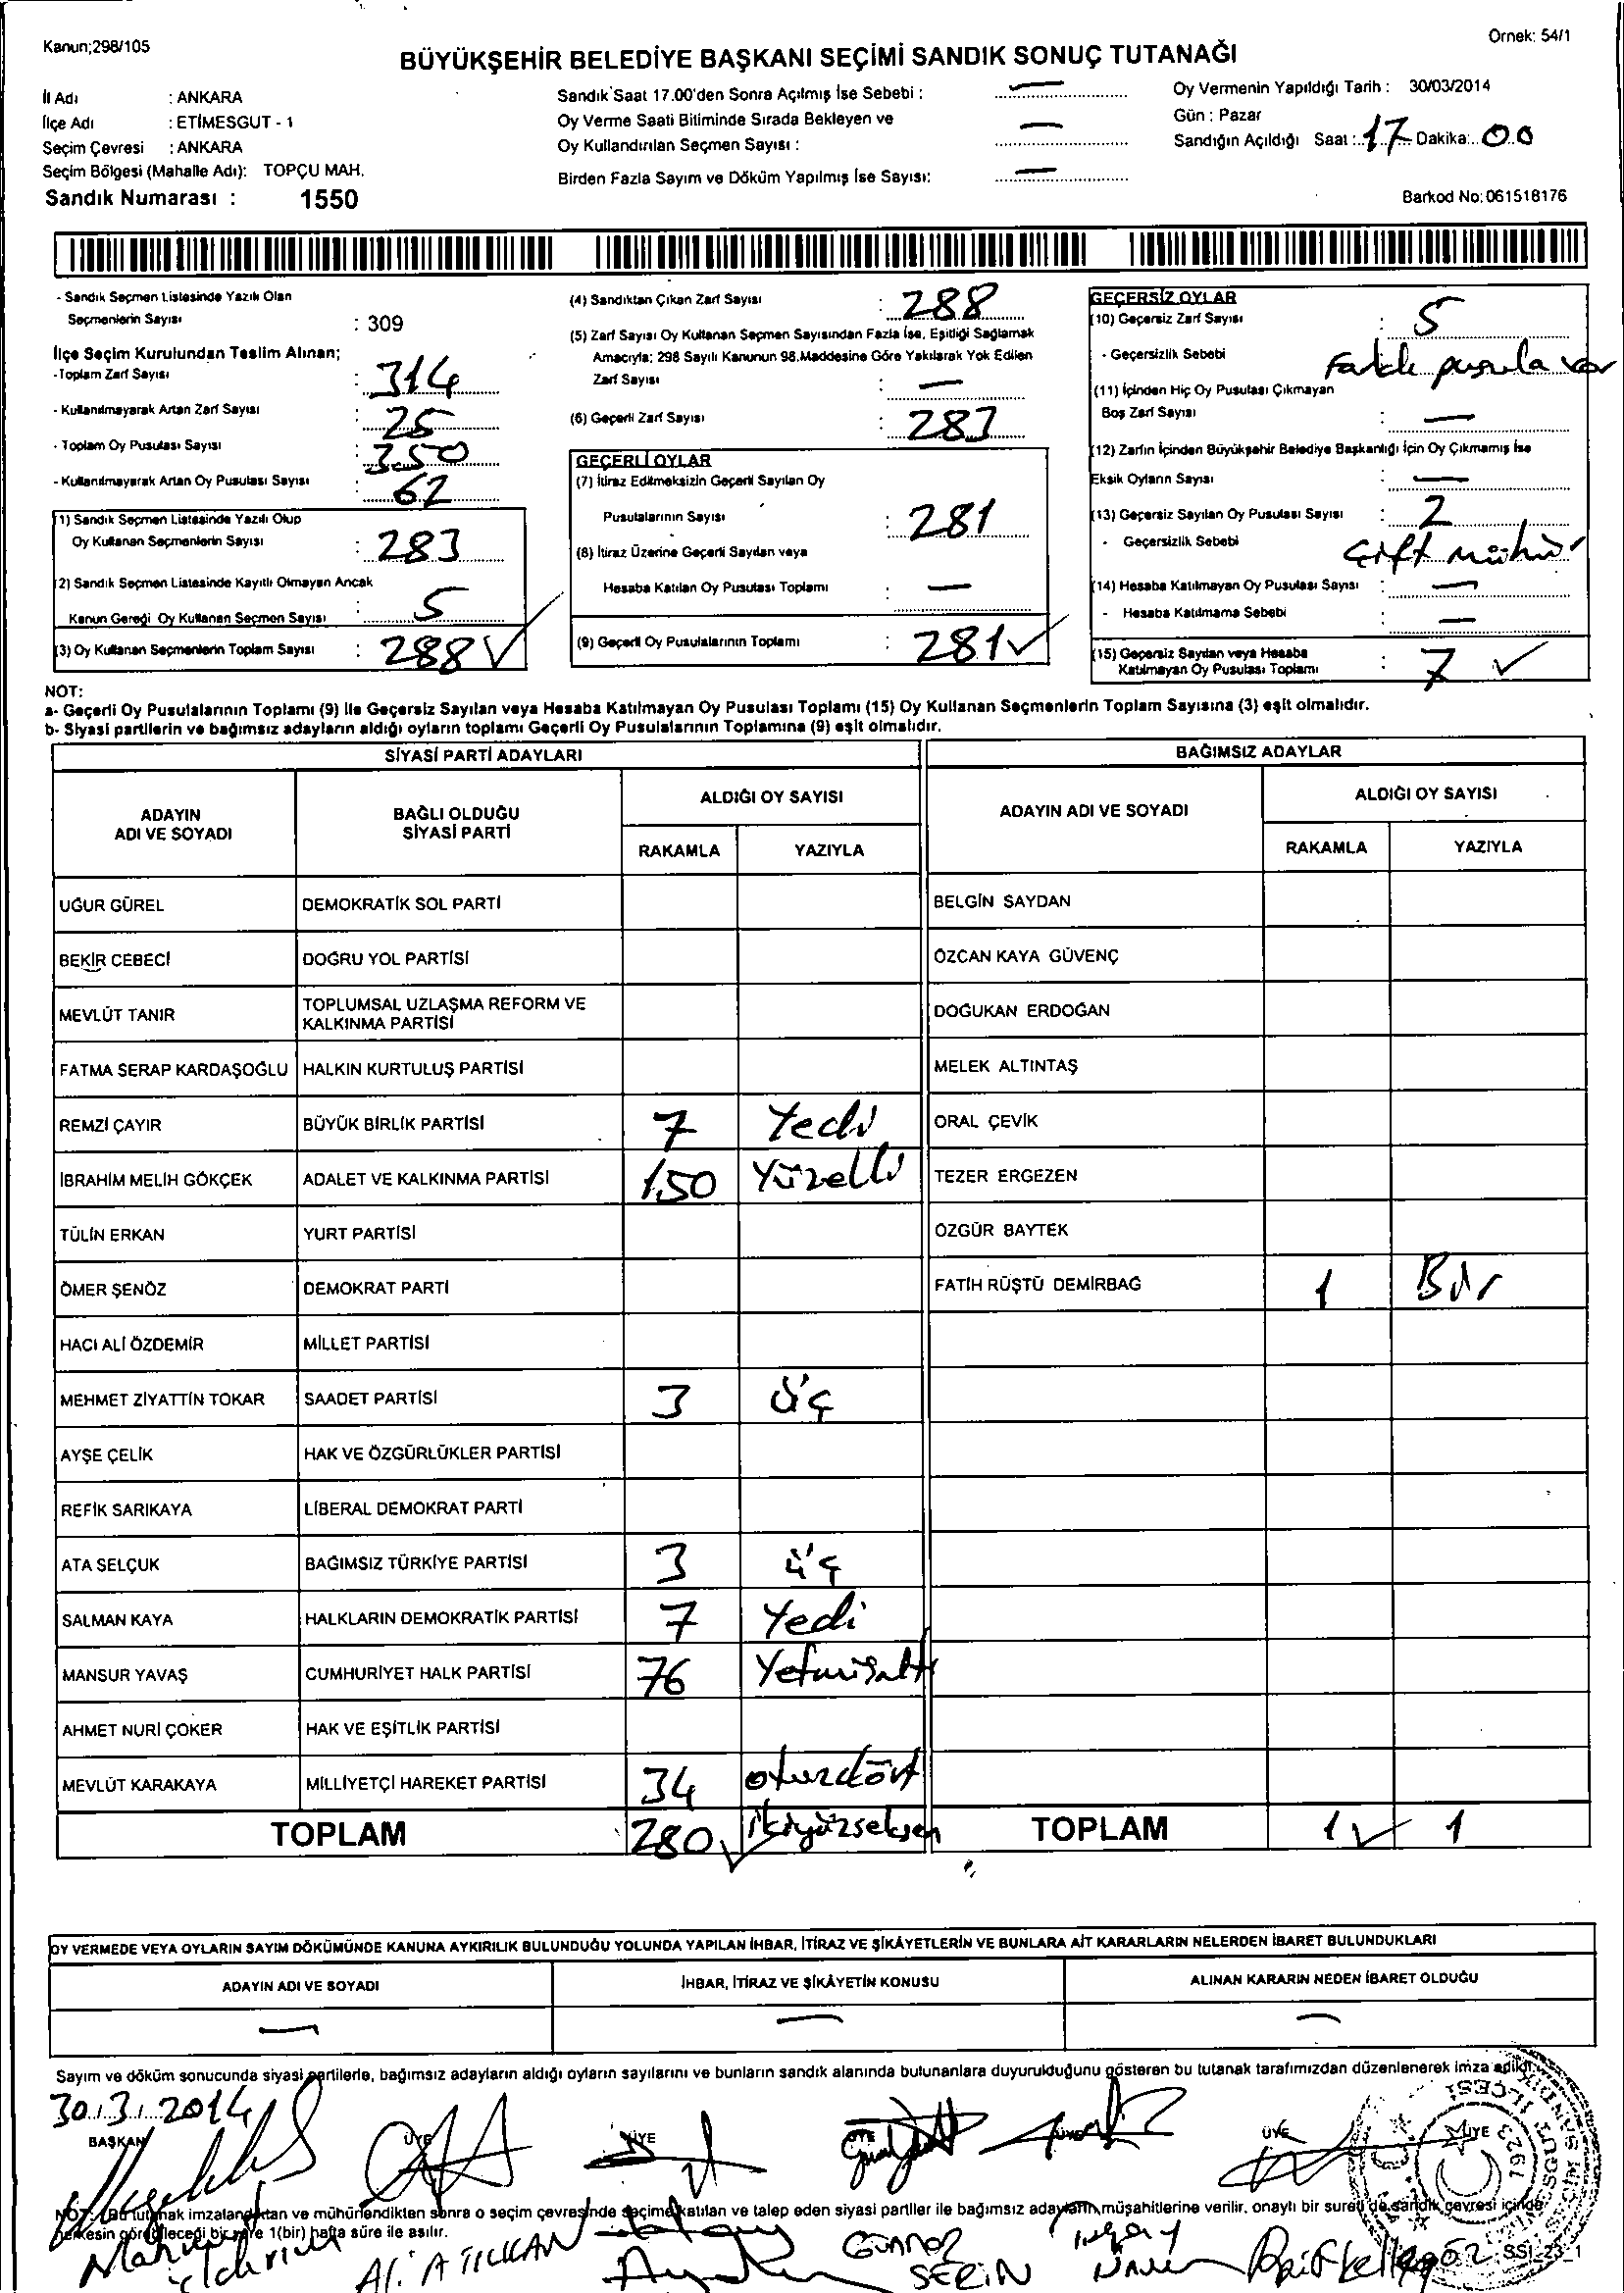 Kanun;298/105
Örnek: 54/1
BÜYÜKŞEHİR BELEDİYE BAŞKANI SEÇİMİ SANDIK SONUÇ TUTANAĞI
İl Adı : ANKARA
İlçe Adı : ETİMESGUT - 1
Seçim Çevresi : ANKARA
Seçim Bölgesi (Mahalle Adı): TOPÇU MAH.
Sandık Numarası : 1550
Sandık Saat 17.00'den Sonra Açılmış İse Sebebi : —
Oy Verme Saati Bitiminde Sırada Bekleyen ve
Oy Kullandırılan Seçmen Sayısı : —
Birden Fazla Sayım ve Döküm Yapılmış İse Sayısı: —
Oy Vermenin Yapıldığı Tarih : 30/03/2014
Gün : Pazar
Sandığın Açıldığı Saat : 17 Dakika: 00
Barkod No: 061518176
- Sandık Seçmen Listesinde Yazılı Olan
Seçmenlerin Sayısı : 309
İlçe Seçim Kurulundan Teslim Alınan;
- Toplam Zarf Sayısı : 314
- Kullanılmayarak Artan Zarf Sayısı : 25
- Toplam Oy Pusulası Sayısı : 350
- Kullanılmayarak Artan Oy Pusulası Sayısı : 62
(1) Sandık Seçmen Listesinde Yazılı Olup
Oy Kullanan Seçmenlerin Sayısı : 283
(2) Sandık Seçmen Listesinde Kayıtlı Olmayan Ancak
Kanun Gereği Oy Kullanan Seçmen Sayısı : 5
(3) Oy Kullanan Seçmenlerin Toplam Sayısı : 288 ✓
(4) Sandıktan Çıkan Zarf Sayısı : 288
(5) Zarf Sayısı Oy Kullanan Seçmen Sayısından Fazla İse, Eşitliği Sağlamak
Amacıyla; 298 Sayılı Kanunun 98.Maddesine Göre Yakılarak Yok Edilen
Zarf Sayısı : —
(6) Geçerli Zarf Sayısı : 283
GEÇERLİ OYLAR
(7) İtiraz Edilmeksizin Geçerli Sayılan Oy
Pusulalarının Sayısı : 281
(8) İtiraz Üzerine Geçerli Sayılan veya
Hesaba Katılan Oy Pusulası Toplamı : —
(9) Geçerli Oy Pusulalarının Toplamı : 281 ✓
GEÇERSİZ OYLAR
(10) Geçersiz Zarf Sayısı : 5
- Geçersizlik Sebebi Farklı pusula var
(11) İçinden Hiç Oy Pusulası Çıkmayan
Boş Zarf Sayısı : —
(12) Zarfın İçinden Büyükşehir Belediye Başkanlığı İçin Oy Çıkmamış İse
Eksik Oyların Sayısı : —
(13) Geçersiz Sayılan Oy Pusulası Sayısı : 2
- Geçersizlik Sebebi Çift mühür
(14) Hesaba Katılmayan Oy Pusulası Sayısı : —
- Hesaba Katılmama Sebebi : —
(15) Geçersiz Sayılan veya Hesaba
Katılmayan Oy Pusulası Toplamı : 7 ✓
NOT:
a- Geçerli Oy Pusulalarının Toplamı (9) ile Geçersiz Sayılan veya Hesaba Katılmayan Oy Pusulası Toplamı (15) Oy Kullanan Seçmenlerin Toplam Sayısına (3) eşit olmalıdır.
b- Siyasi partilerin ve bağımsız adayların aldığı oyların toplamı Geçerli Oy Pusulalarının Toplamına (9) eşit olmalıdır.
SİYASİ PARTİ ADAYLARI
ADAYIN ADI VE SOYADI
BAĞLI OLDUĞU SİYASİ PARTİ
ALDIĞI OY SAYISI
RAKAMLA YAZIYLA
UĞUR GÜREL DEMOKRATİK SOL PARTİ
BEKİR CEBECİ DOĞRU YOL PARTİSİ
MEVLÜT TANIR TOPLUMSAL UZLAŞMA REFORM VE KALKINMA PARTİSİ
FATMA SERAP KARDAŞOĞLU HALKIN KURTULUŞ PARTİSİ
REMZİ ÇAYIR BÜYÜK BİRLİK PARTİSİ 7 Yedi
İBRAHİM MELİH GÖKÇEK ADALET VE KALKINMA PARTİSİ 150 Yüzelli
TÜLİN ERKAN YURT PARTİSİ
ÖMER ŞENÖZ DEMOKRAT PARTİ
HACI ALİ ÖZDEMİR MİLLET PARTİSİ
MEHMET ZİYATTİN TOKAR SAADET PARTİSİ 3 üç
AYŞE ÇELİK HAK VE ÖZGÜRLÜKLER PARTİSİ
REFİK SARIKAYA LİBERAL DEMOKRAT PARTİ
ATA SELÇUK BAĞIMSIZ TÜRKİYE PARTİSİ 3 üç
SALMAN KAYA HALKLARIN DEMOKRATİK PARTİSİ 7 Yedi
MANSUR YAVAŞ CUMHURİYET HALK PARTİSİ 76 Yetmişaltı
AHMET NURİ ÇOKER HAK VE EŞİTLİK PARTİSİ
MEVLÜT KARAKAYA MİLLİYETÇİ HAREKET PARTİSİ 34 otuzdört
TOPLAM 280 ✓ ikiyüzseksen
BAĞIMSIZ ADAYLAR
ADAYIN ADI VE SOYADI
ALDIĞI OY SAYISI
RAKAMLA YAZIYLA
BELGİN SAYDAN
ÖZCAN KAYA GÜVENÇ
DOĞUKAN ERDOĞAN
MELEK ALTINTAŞ
ORAL ÇEVİK
TEZER ERGEZEN
ÖZGÜR BAYTEK
FATİH RÜŞTÜ DEMİRBAĞ 1 Bir
TOPLAM 1 ✓ 1
OY VERMEDE VEYA OYLARIN SAYIM DÖKÜMÜNDE KANUNA AYKIRILIK BULUNDUĞU YOLUNDA YAPILAN İHBAR, İTİRAZ VE ŞİKÂYETLERİN VE BUNLARA AİT KARARLARIN NELERDEN İBARET BULUNDUKLARI
ADAYIN ADI VE SOYADI İHBAR, İTİRAZ VE ŞİKÂYETİN KONUSU ALINAN KARARIN NEDEN İBARET OLDUĞU
— — —
Sayım ve döküm sonucunda siyasi partilerle, bağımsız adayların aldığı oyların sayılarını ve bunların sandık alanında bulunanlara duyurulduğunu gösteren bu tutanak tarafımızdan düzenlenerek imza edildi.
30.3.2014
BAŞKAN ÜYE ÜYE ÜYE ÜYE ÜYE ÜYE
NOT: Bu tutanak imzalandıktan ve mühürlendikten sonra o seçim çevresinde seçime katılan ve talep eden siyasi partiler ile bağımsız adayların müşahitlerine verilir, onaylı bir sureti de sandık çevresi içinde
herkesin görebileceği bir yere 1(bir) hafta süre ile asılır.
Ali ATILKAN
GÜNNOZ SERİN
SSI_23_1